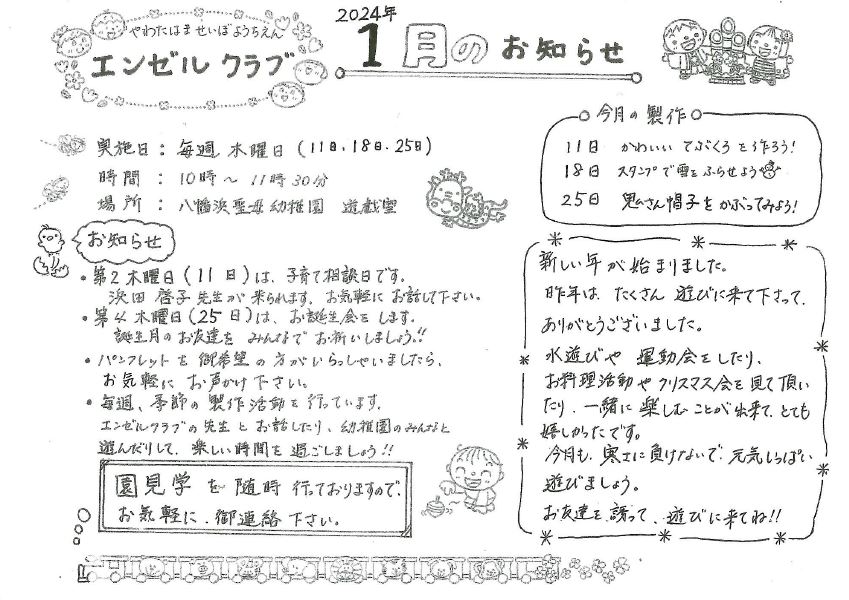 やわたはま せいぼ ようちえん
エンゼル クラブ
2024年
1月の お知らせ
実施日：毎週 木曜日 (11日、18日、25日)
時間：10時～11時30分
場所：八幡浜聖母幼稚園 遊戯室
お知らせ
・第2木曜日(11日)は、子育て相談日です。
浜田 啓子先生が来られます。お気軽にお話して下さい。
・第4木曜日(25日)は、お誕生会をします。
誕生月のお友達を みんなで お祈いしましょう!!
・パンフレットを御希望の方がいらっしゃいましたら、
お気軽に お声かけ下さい。
・毎週、季節の製作活動を行っています。
エンゼルクラブの先生とお話したり、幼稚園のみんなと
遊んだりして、楽しい時間を過ごしましょう!!
園見学を随時行っておりますので、
お気軽に、御連絡下さい。
今月の製作
11日 かわいい てぶくろを作ろう!
18日 スタンプで雪をふらせよう
25日 鬼さん帽子をかぶってみよう!
新しい年が始まりました。
昨年は、たくさん 遊びに来て下さって、
ありがとうございました。
水遊びや 運動会をしたり、
お料理活動やクリスマス会を見て頂い
たり、一緒に楽しむことが出来て、とても
嬉しかったです。
今月も、寒さに負けないで、元気いっぱい
遊びましょう。
お友達を誘って、遊びに来てね!!